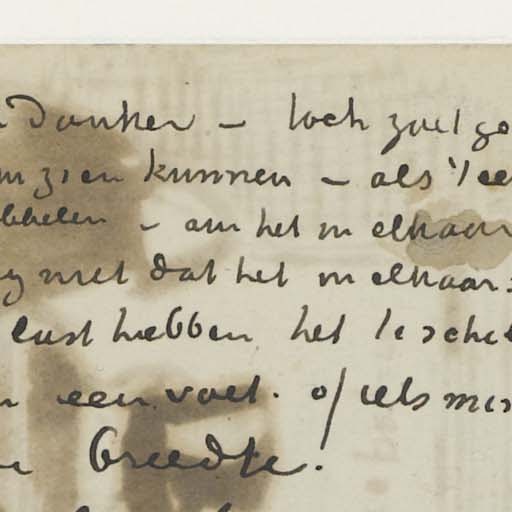 Donker – toch zult ge
zien kunnen – als 't een
– om het in elkaar
niet dat het in elkaar
lust hebben het te sche
een voet. of iets min
breedte.